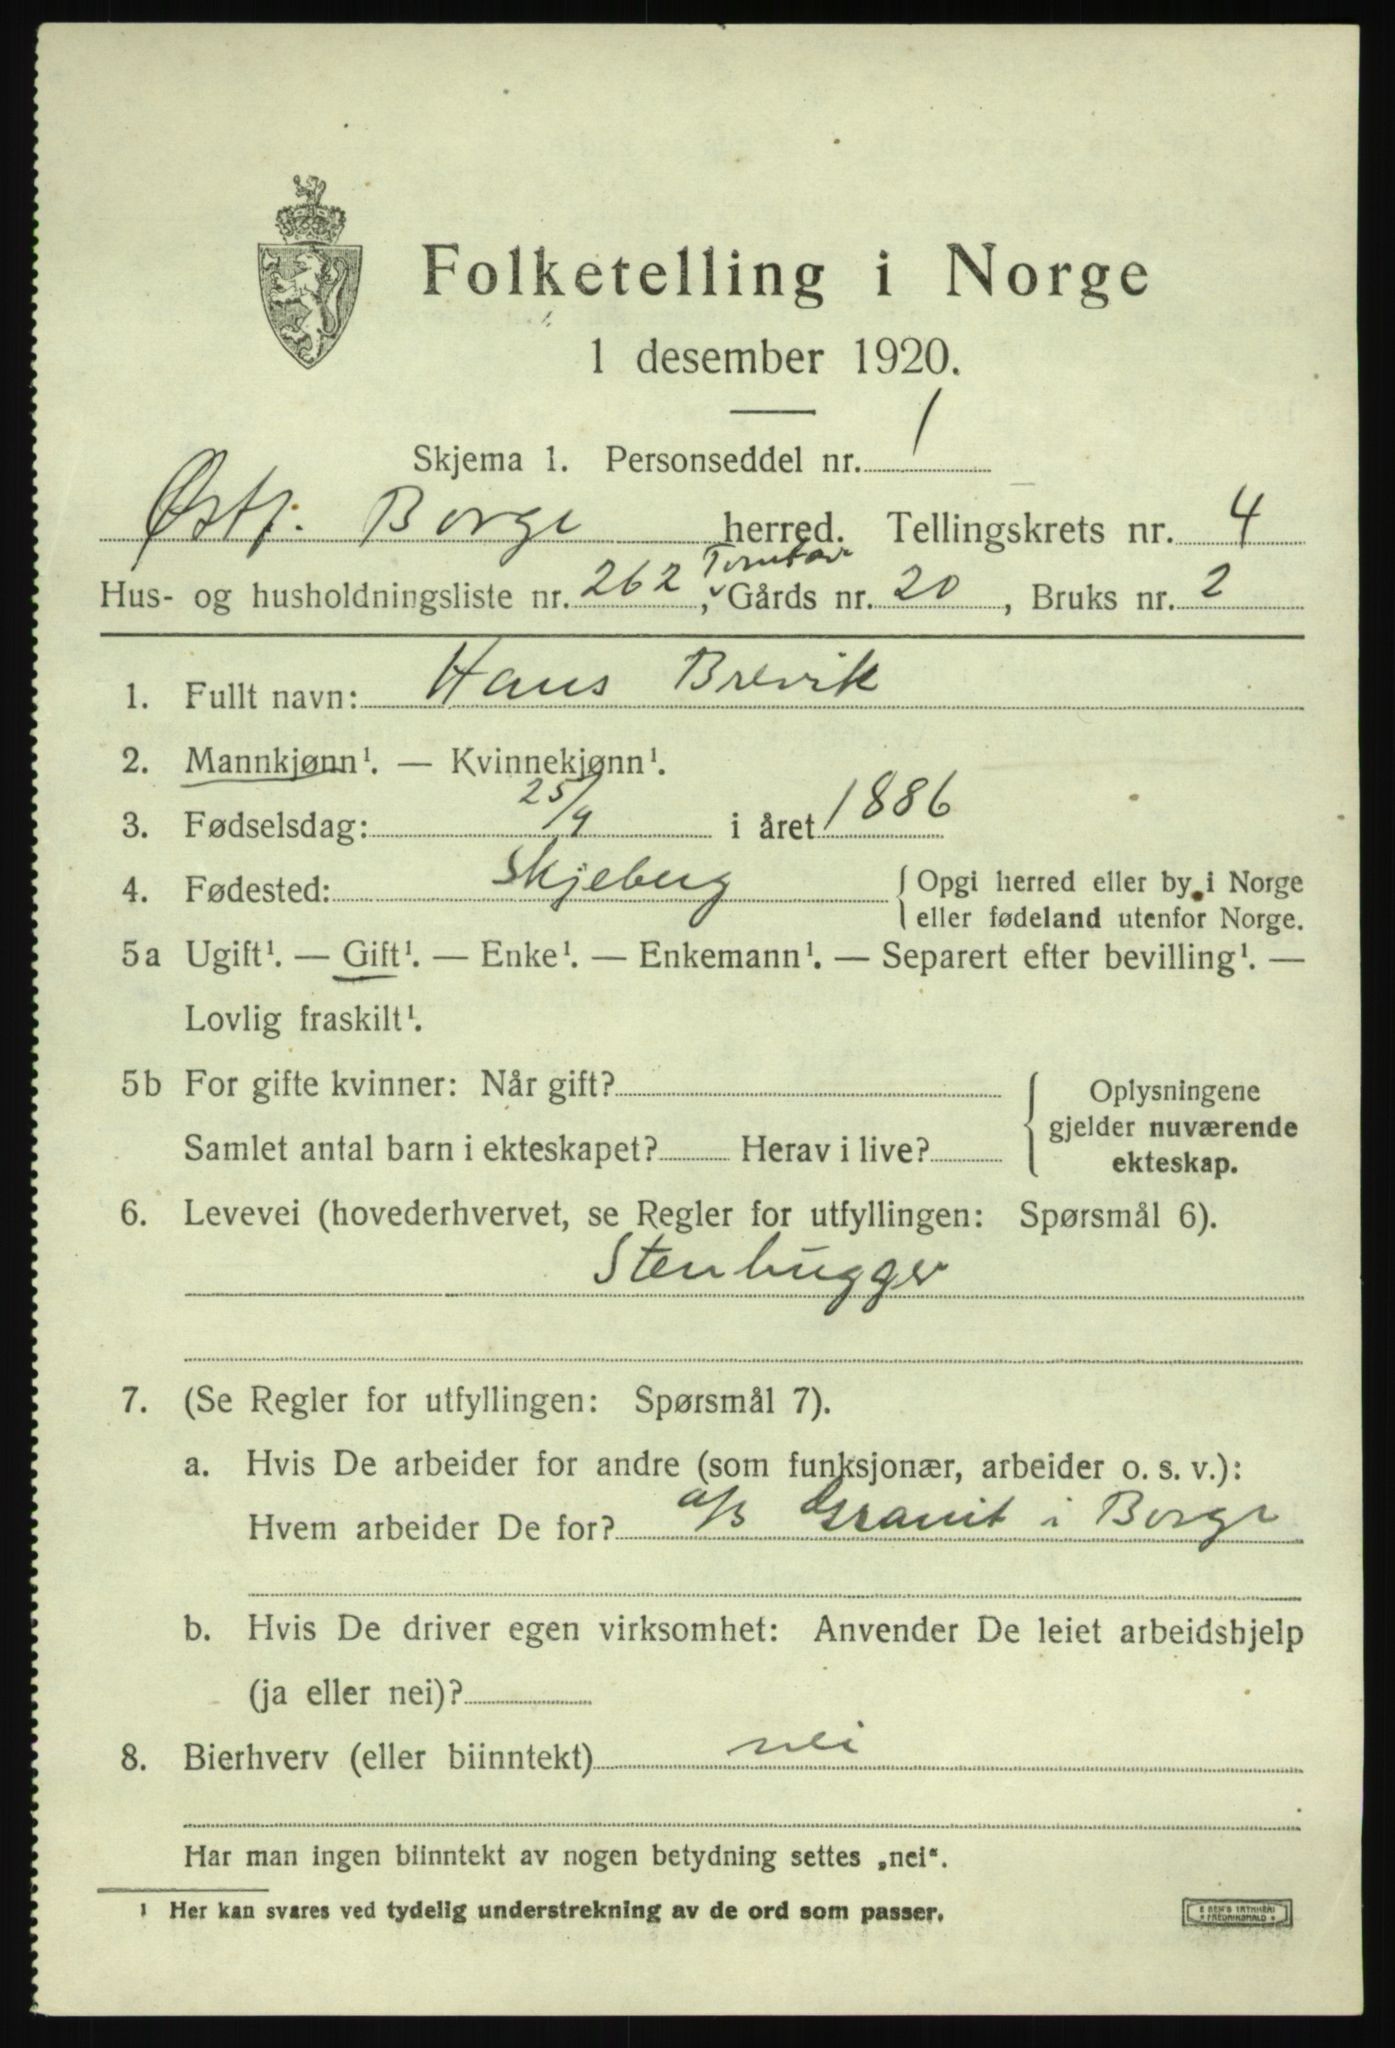 Folketelling i Norge
1 desember 1920.
Skjema 1. Personseddel nr. 1
Østf. Borge herred. Tellingskrets nr. 4
Hus- og husholdningsliste nr. 262, Gårds nr. 20, Bruks nr. 2
1. Fullt navn: Hans Brevik
2. Mannkjønn¹. — Kvinnekjønn¹.
3. Fødselsdag: 25/9 i året 1886
4. Fødested: Skjeberg { Opgi herred eller by i Norge
eller fødeland utenfor Norge.
5a Ugift¹. — Gift¹. — Enke¹. — Enkemann¹. — Separert efter bevilling¹. —
Lovlig fraskilt¹.
5b For gifte kvinner: Når gift? { Oplysningene
gjelder nuværende
Samlet antal barn i ekteskapet? Herav i live? ekteskap.
6. Levevei (hovederhvervet, se Regler for utfyllingen: Spørsmål 6).
Stenhugger
7. (Se Regler for utfyllingen: Spørsmål 7).
a. Hvis De arbeider for andre (som funksjonær, arbeider o. s. v.):
Hvem arbeider De for? a/s Granit i Borge
b. Hvis De driver egen virksomhet: Anvender De leiet arbeidshjelp
(ja eller nei)?
8. Bierhverv (eller biinntekt) nei
Har man ingen biinntekt av nogen betydning settes „nei“.
¹ Her kan svares ved tydelig understrekning av de ord som passer.